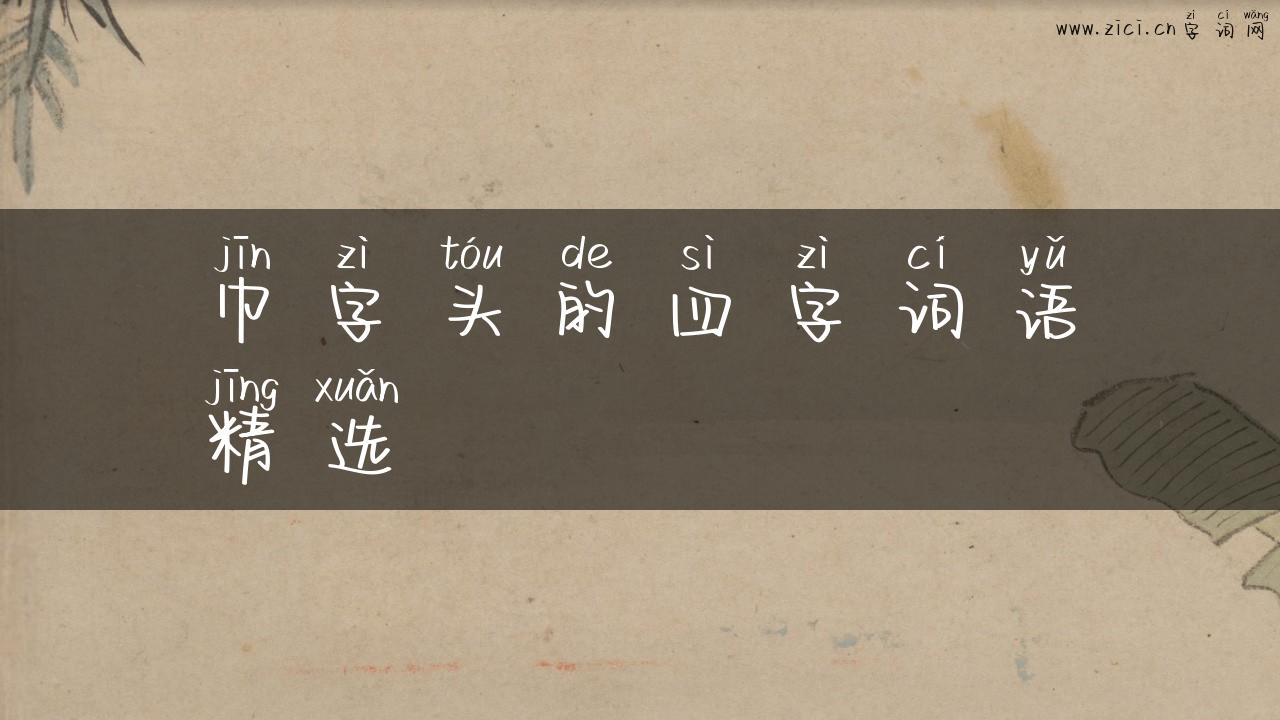 zì cí wǎng
www.zici.cn 字词网
jīn zì tóu de sì zì cí yǔ
巾字头的四字词语
jīng xuǎn
精选